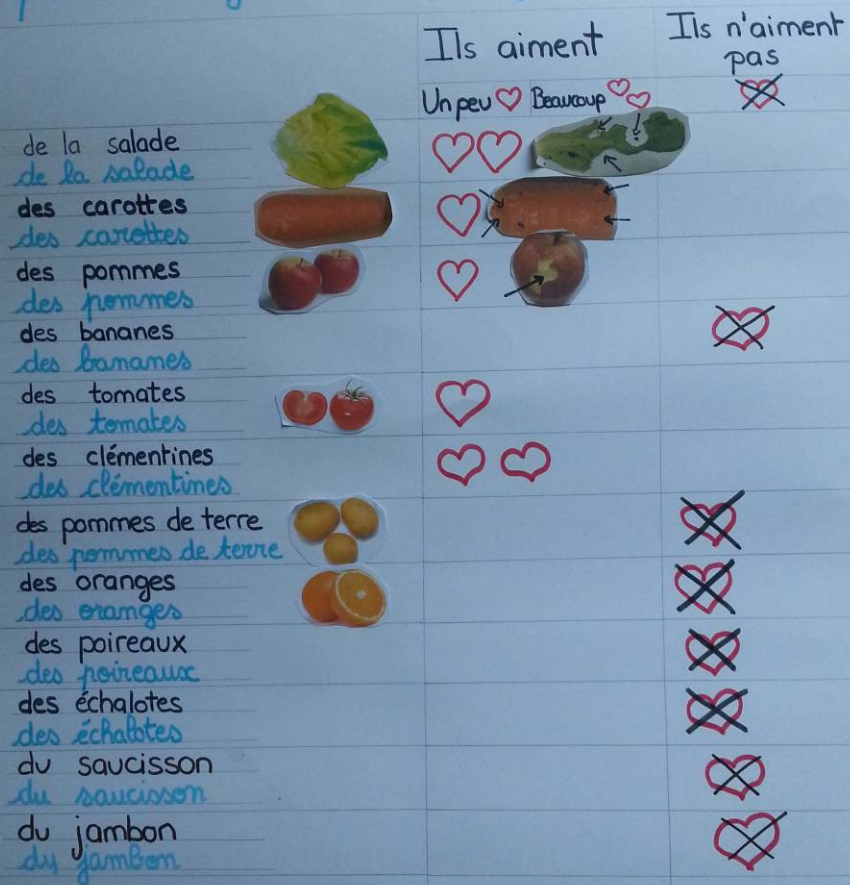 Ils aiment
Ils n'aiment
pas
Un peu
Beaucoup
de la salade
de la salade
des carottes
des carottes
des pommes
des pommes
des bananes
des bananes
des tomates
des tomates
des clémentines
des clémentines
des pommes de terre
des pommes de terre
des oranges
des oranges
des poireaux
des poireaux
des échalotes
des échalotes
du saucisson
du saucisson
du jambon
du jambon